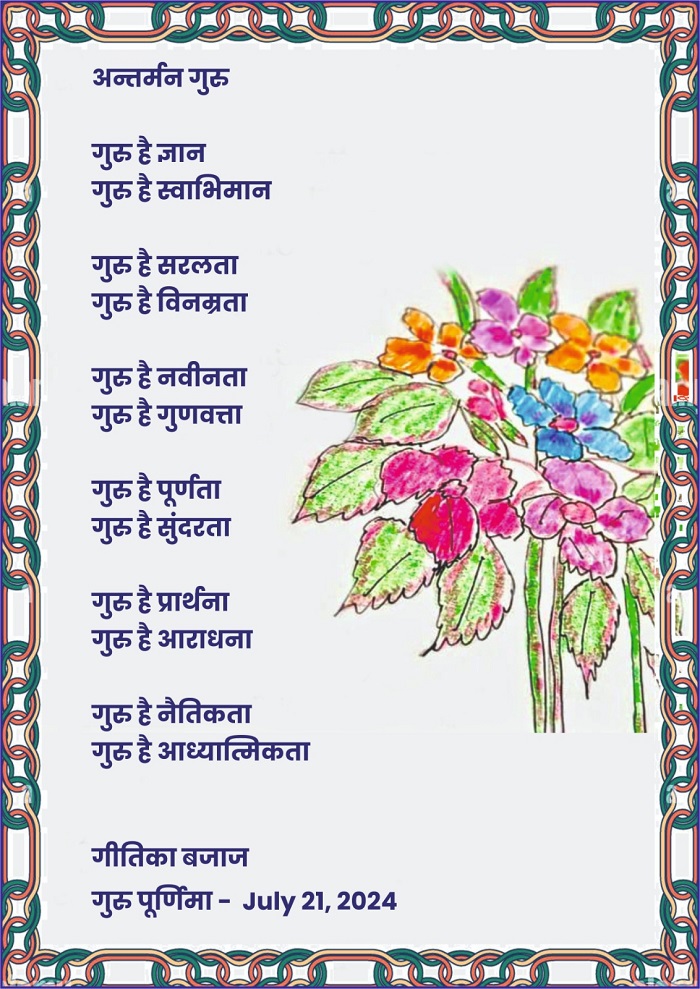 अन्तर्मन गुरु
गुरु है ज्ञान
गुरु है स्वाभिमान
गुरु है सरलता
गुरु है विनम्रता
गुरु है नवीनता
गुरु है गुणवत्ता
गुरु है पूर्णता
गुरु है सुंदरता
गुरु है प्रार्थना
गुरु है आराधना
गुरु है नैतिकता
गुरु है आध्यात्मिकता
गीतिका बजाज
गुरु पूर्णिमा - July 21, 2024